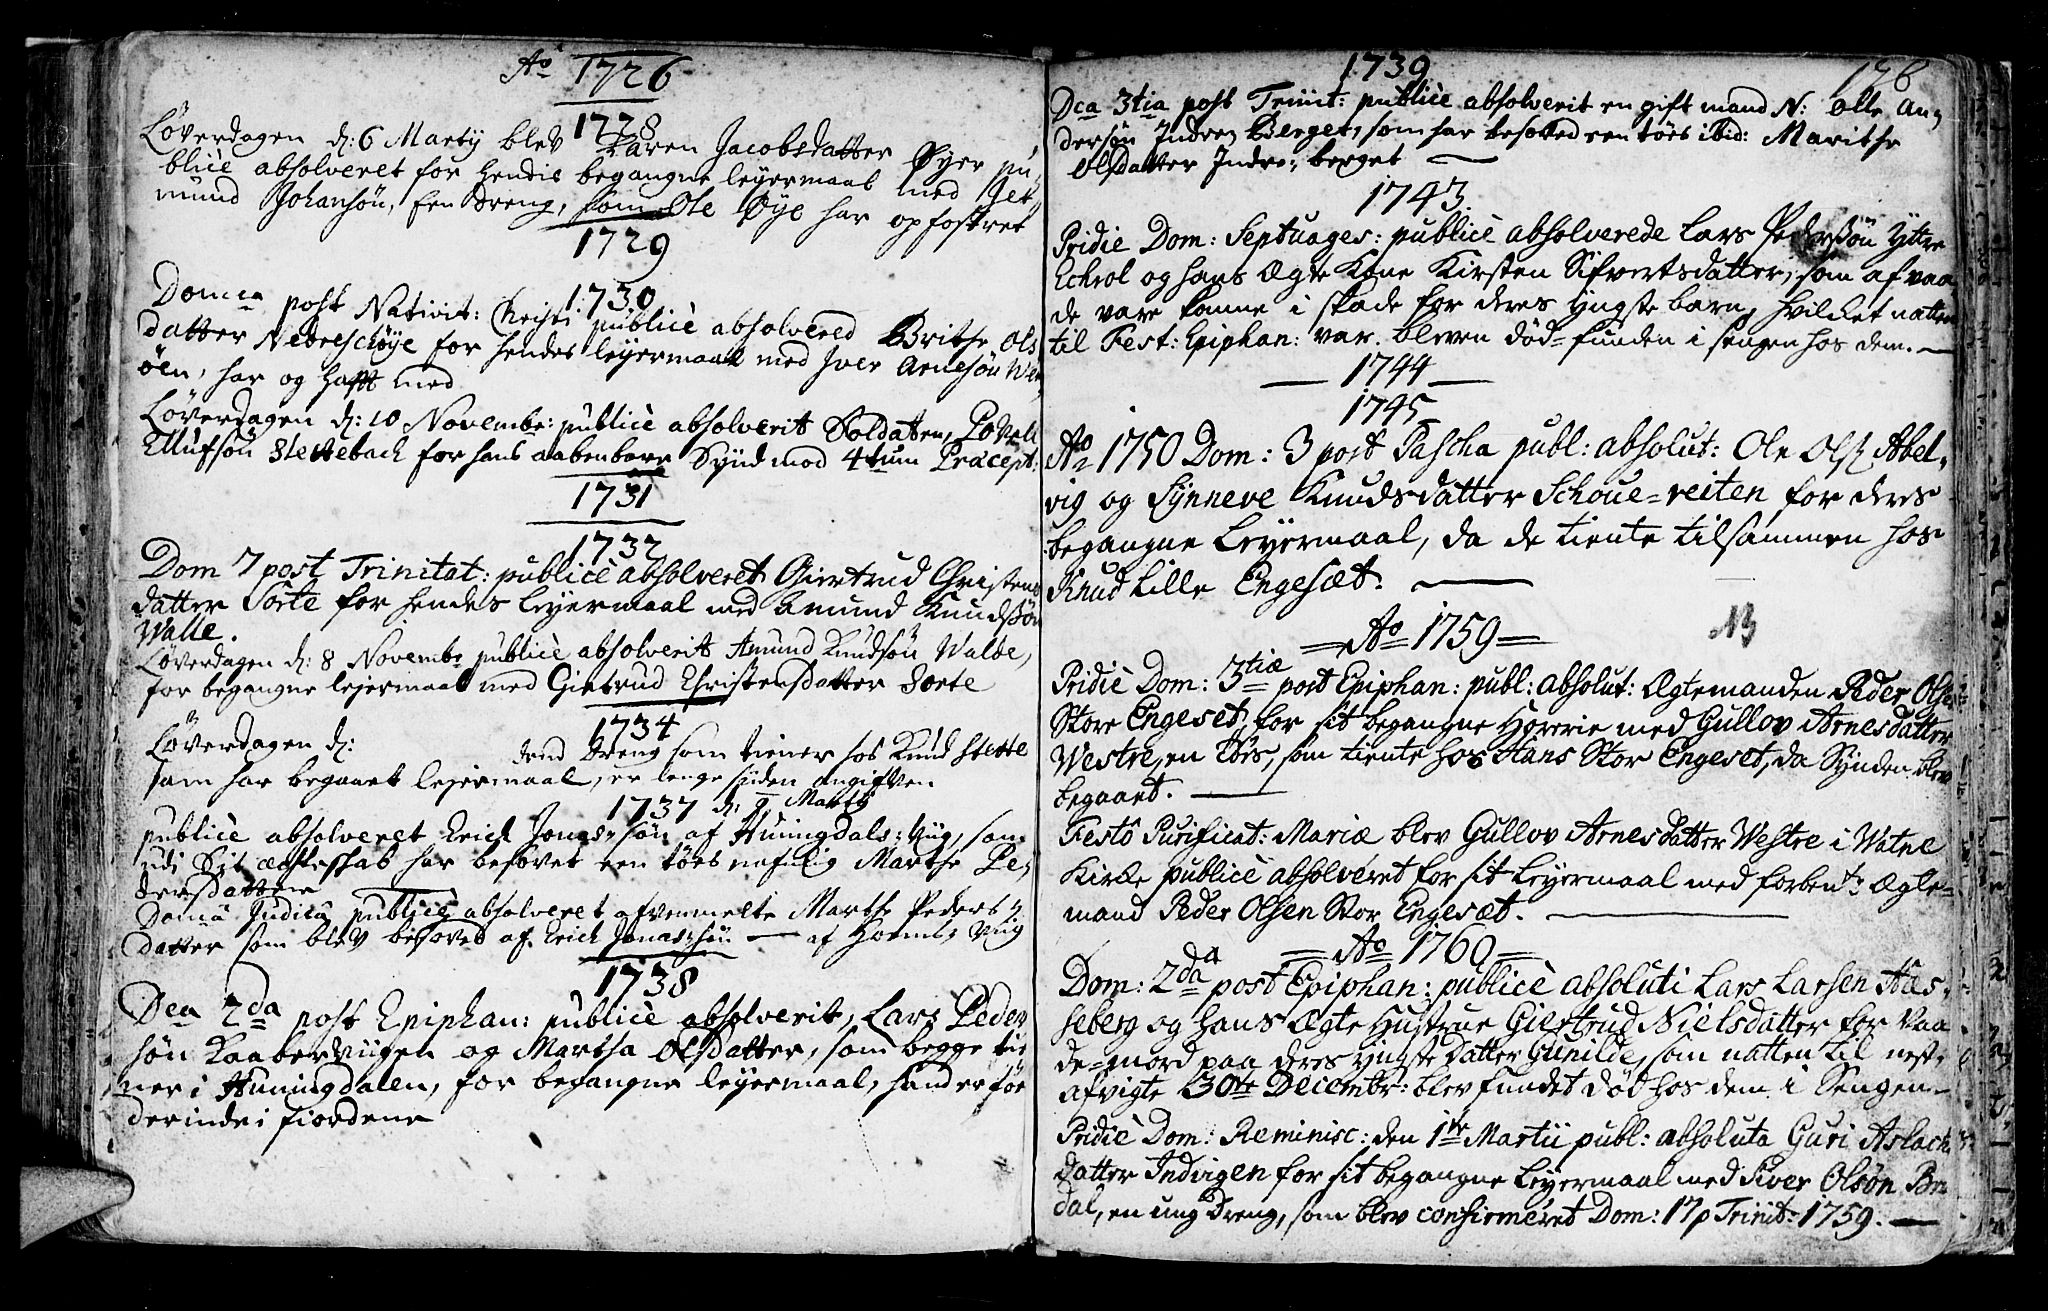 Ao 1726
1728
Løverdagen d: 6 Martij blev Karen Jacobsdatter Øyer pu,
blicè absolveret for hendis begangne leyermaal med Jet,
mund Johansøn, een dreng, som Ole Øye har opfostret
1729
1730
Domca post Nativit: Christi publicè absolvered Brithe Ols
datter Nedreschøye for hendes leyermaal med Iver Arnesøn We,
øen, har og hafft med
Løverdagen d: 10 Novembr: publicè absolverit Soldaten, Povell
Ellufsøn Sletteback for hans aabenbare Synd mod 4tum Præcept.
1731
1732
Dom 7 post Trinitat: publicè absolveret Giertrud Christens
datter Sorte for hendes Leyermaal med Amund Knudssøn
Walle.
Løverdagen d: 8 Novembr publicè absolverit Amund Knudsøn Walde,
for begangne lejermaal med Giertrud Christensdatter Sorte
1734
Løverdagen d: dend dreng som tiener hos Knud Stette
som har begaaet lejermaal, er lenge siden angifven
1737 d: 9 Martij
publicè absolveret Erich Jonas=søn af Huningdals=Viig, som
udi sit ægteskab har besovet een tøes nafnlig Marthe Pe,
dersdatter
Domca Judica publicè absolveret afvenmelte Marthe Peders,
datter som blev besovet af Erich Jonas=søn — af Hornls Viig
1738
Dca 2da post Epiphan: publicè absolverit, Lars Peder
søn Kaabervügen og Martha Olsdatter, som begge tie
ner i Huningdalen, for begangne leyermaal, hand er før
der inde i fiordene
1739
176
Dca 3tia post Triiit: publicè absolverit en gift mand N: Olle An,
dersøn Indre Berget, som har besofved een tøes ibid: Marithe
Olsdatter Indre; berget —
1743.
Pridiè Dom: Septuages: publicè absolverede Lars Pedersøn Yttre
Echrol og hans Ægte Kone Kirsten Sifvertsdatter, som af vaa,
de vare komne i skade for deres yngste barn, hvilcket natten
til Fest: Epiphan: var bleven død=funden i sengen hos dem. —
— 1744 —
1745
Ao 1750 Dom: 3 post Pascha publ: absolut: Ole Olss Abel,
vig og Synneve Knudsdatter Schoue=reiten for deres
begangne Leyermaal, da de tiente tilsammen hos
Knud Lille Engesæt. —
= Ao 1759 = NB
Pridiè Dom: 3tiæ post Epiphan: publ: absolut: Ægtemanden Peder Olsen
Store Engeset for sit begangne Horerie med Gullov Arnesdatter
Westre, en Tøes, som tiente hos Hans Stor Engeset, da Synden blev
begaaet. —
Festô Purificat: Mariæ blev Gullov Arnesdatter Westre i Watne
Kirke publicè absolveret for sit Leyermaal med forbent: Ægte=
mand Peder Olsen Stor Engesæt. —
= Ao 1760 =
Dom: 2da post Epiphan: publicè absoluti Lars Larsen Hæs,
seberg og hans Ægte Hustrue Giertrud Nielsdatter for Vaa
de=mord paa deres yngste Datter Gunilde, som natten til nest,
afvigte 30te Decembr: blev fundet død hos dem i Sengen.
Pridiè Dom: Reminisc: den 1te Martii publ: absoluta Guri Aslachs
datter Indvigen for sit begangne Leyermaal med Siver Olsøn Bre
dal, en ung Dreng, som blev confirmeret Dom: 17 p Trinit: 1759. —